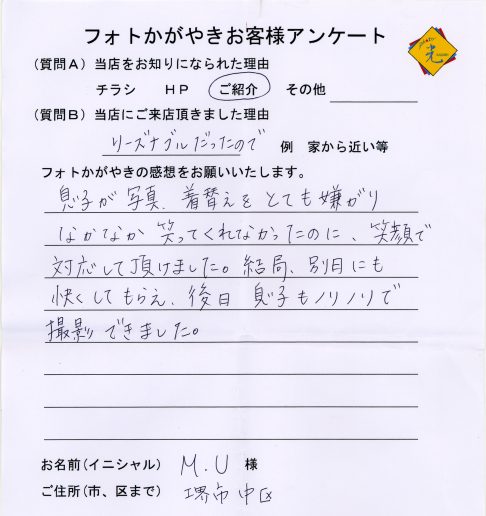 フォトかがやきお客様アンケート
光
(質問A) 当店をお知りになられた理由
チラシ HP ご紹介 その他
(質問B) 当店にご来店頂きました理由
リーズナブルだったので 例 家から近い等
フォトかがやきの感想をお願いいたします。
息子が写真、着替えをとても嫌がり
なかなか笑ってくれなかったのに、笑顔で
対応して頂けました。結局、別日にも
快くしてもらえ、後日息子もノリノリで
撮影できました。
お名前(イニシャル) M.U 様
ご住所(市、区まで) 堺市中区